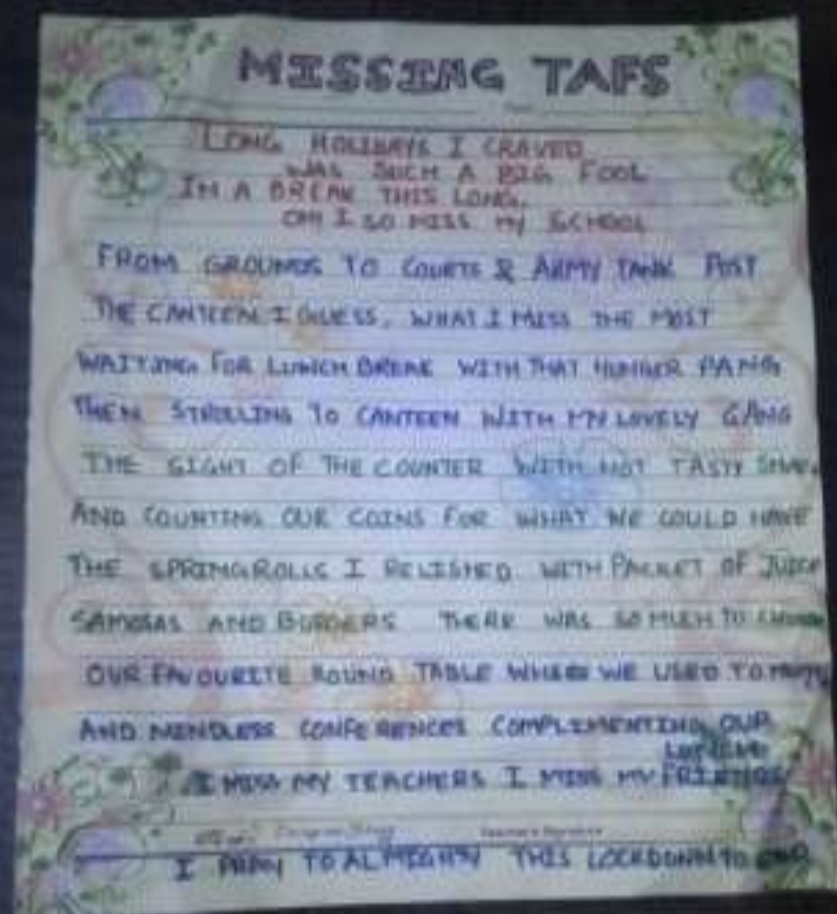 MISSING TAFS
LONG HOLIDAYS I CRAVED
WAS SUCH A BIG FOOL
IM A BREAK THIS LONG.
OH! I SO MISS MY SCHOOL
FROM GROUNDS TO COURTS & ARMY TANK POST
THE CANTEEN I GUESS, WHAT I MISS THE MOST
WAITING FOR LUNCH BREAK WITH THAT HUNGER PANG
THEN STROLLING TO CANTEEN WITH MY LOVELY GANG
THE SIGHT OF THE COUNTER WITH HOT TASTY
AND COUNTING OUR COINS FOR WHAT WE COULD HAVE
THE SPRINGROLLS I RELISHED WITH PACKET OF JUICE
SAMOSAS AND BURGERS THERE WAS SO MUCH TO CHOOSE
OUR FAVOURITE ROUND TABLE WHERE WE USED TO
AND MINDLESS CONFERENCES COMPLIMENTING OUR
I MISS MY TEACHERS I MISS MY FRIENDS
I PRAY TO ALMIGHTY THIS LOCKDOWN TO END